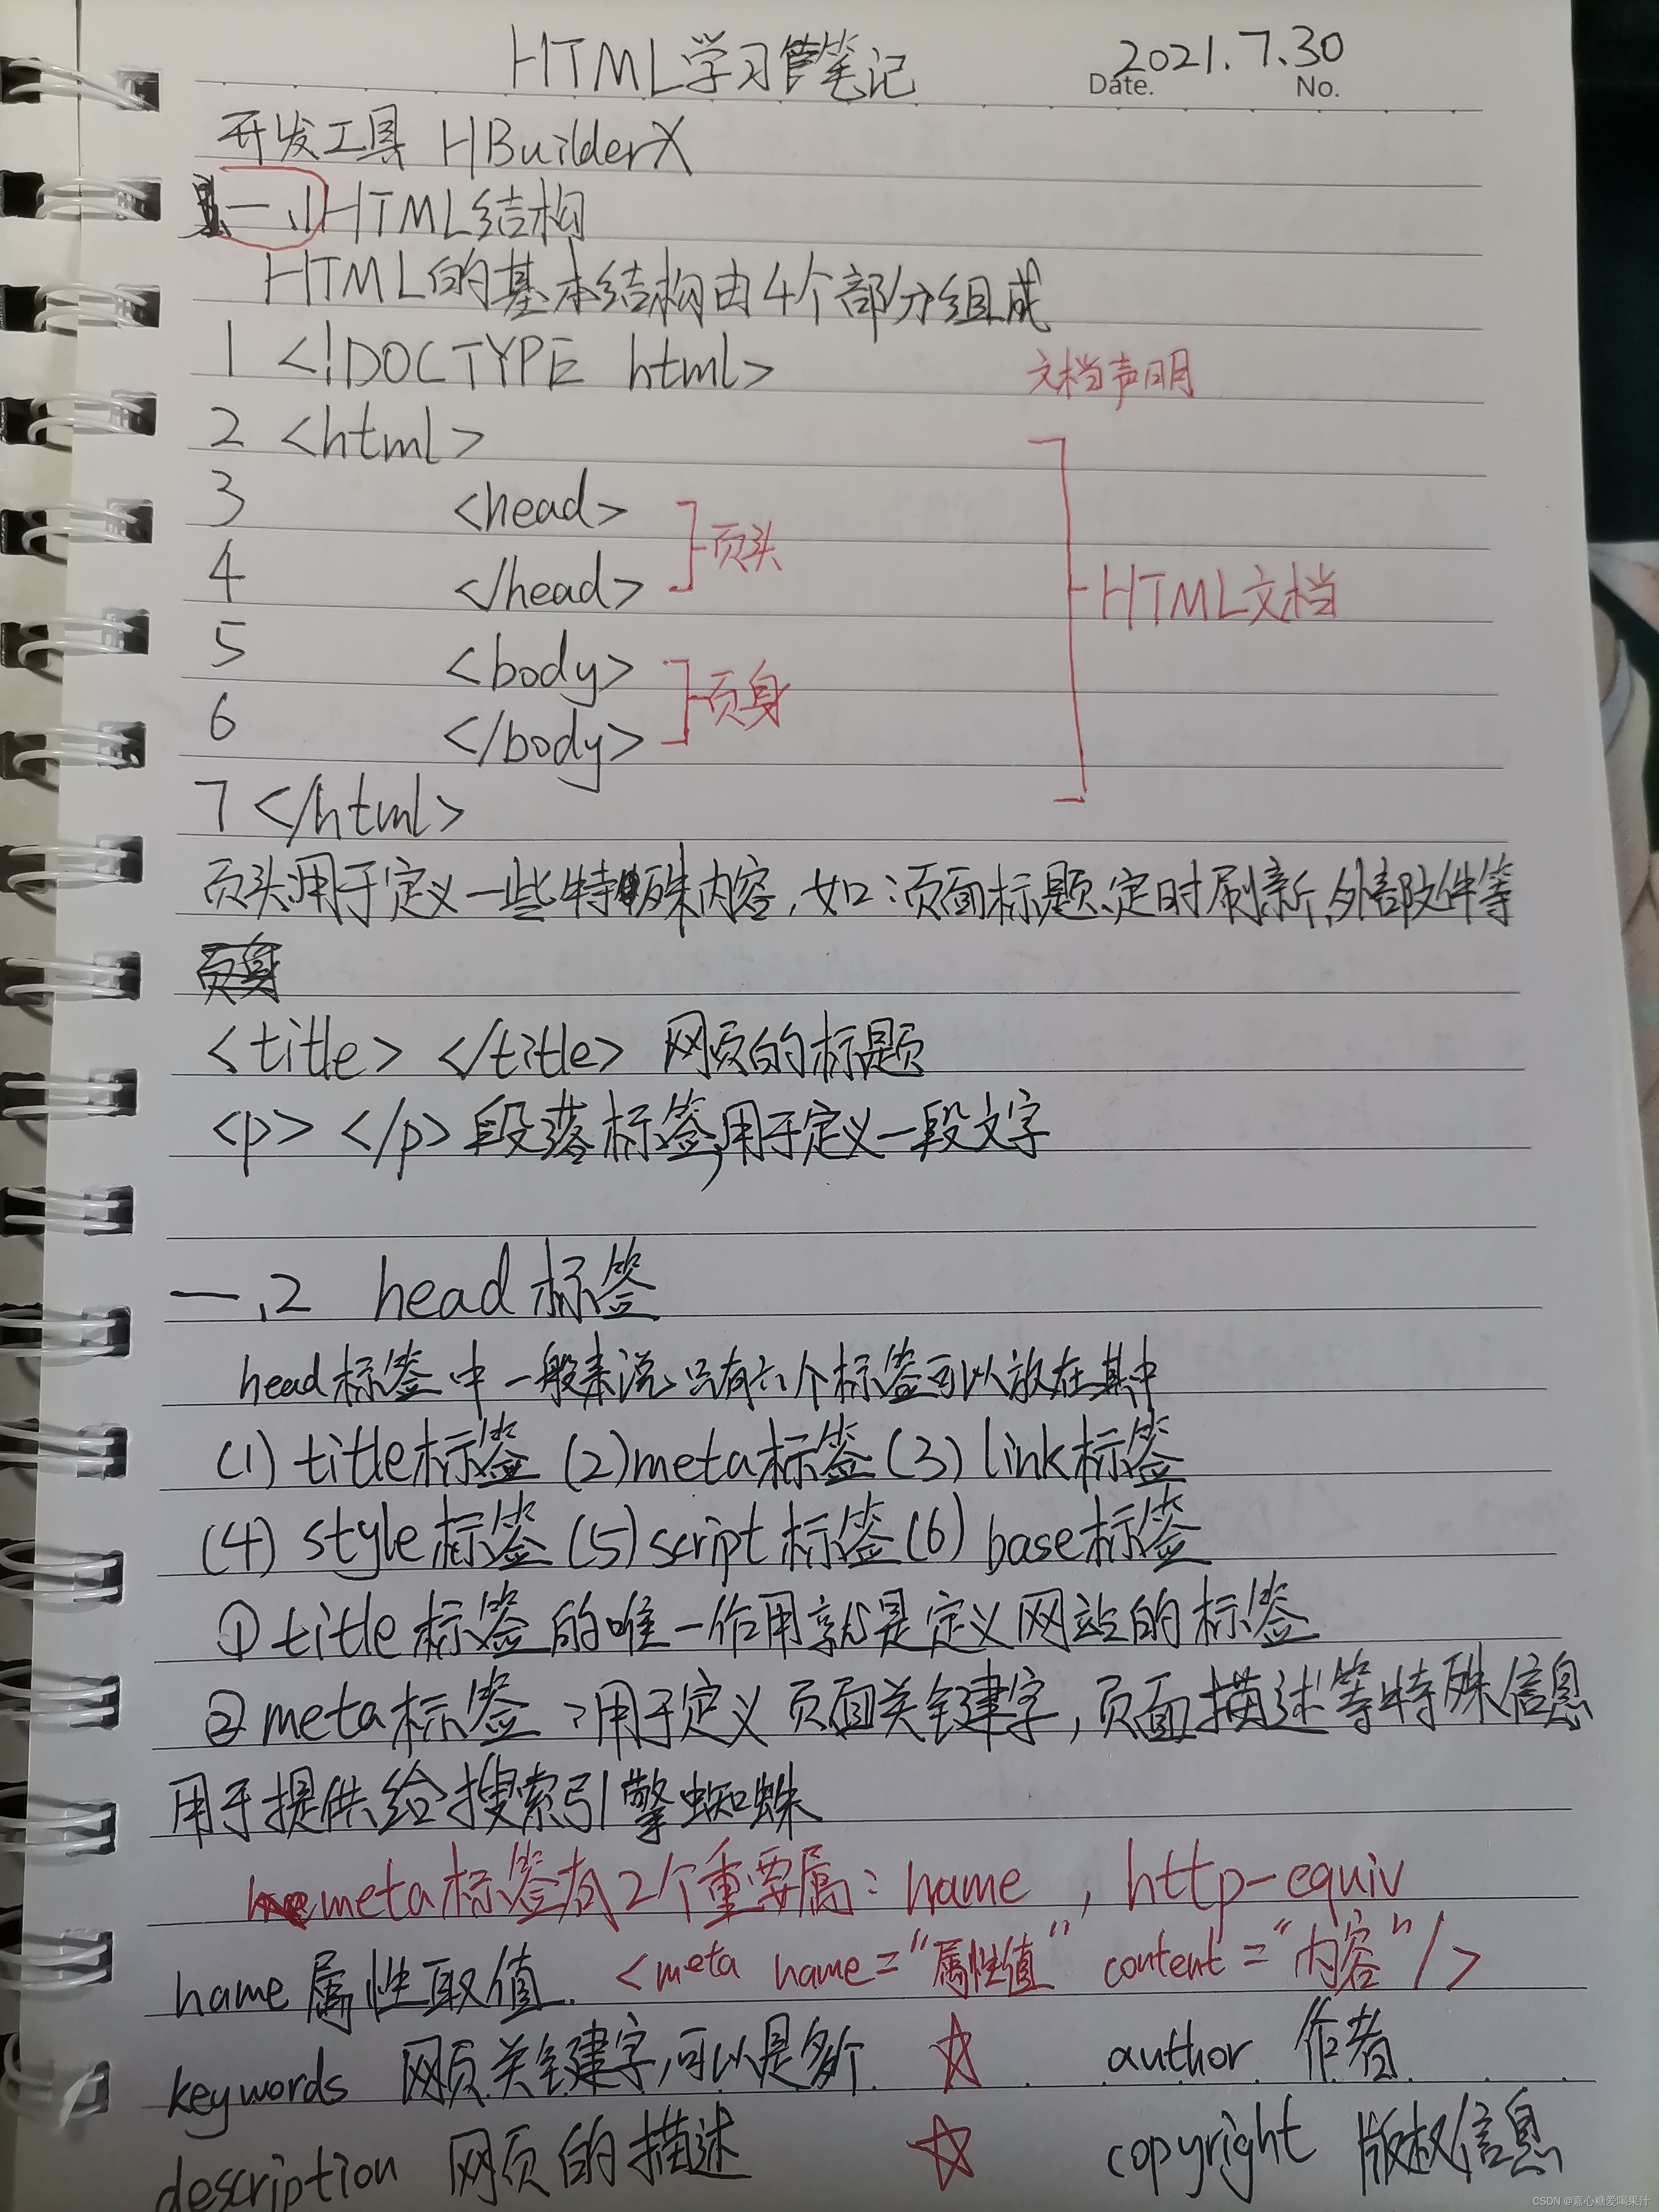 HTML学习笔记 2021.7.30
Date. No.
开发工具 HBuilderX
一、1 HTML结构
HTML的基本结构由4个部分组成
1 <!DOCTYPE html> 文档声明
2 <html>
3 <head>
页头
4 </head>
HTML文档
5 <body>
页身
6 </body>
7 </html>
页头用于定义一些特殊内容,如:页面标题、定时刷新,外部文件等
页身
<title> </title> 网页的标题
<p> </p> 段落标签,用于定义一段文字
一、2 head标签
head标签中一般来说,只有六个标签可以放在其中
(1) title标签 (2)meta标签 (3) link标签
(4) style标签 (5) script标签 (6) base标签
① title标签的唯一作用就是定义网站的标签
② meta标签:用于定义页面关键字,页面描述等特殊信息
用于提供给搜索引擎蜘蛛
meta标签有2个重要属:name , http-equiv
name属性取值. <meta name="属性值" content="内容"/>
keywords 网页关键字,可以是多个 ☆ author 作者
description 网页的描述 ☆ copyright 版权信息
CSDN @嘉心糖爱喝果汁